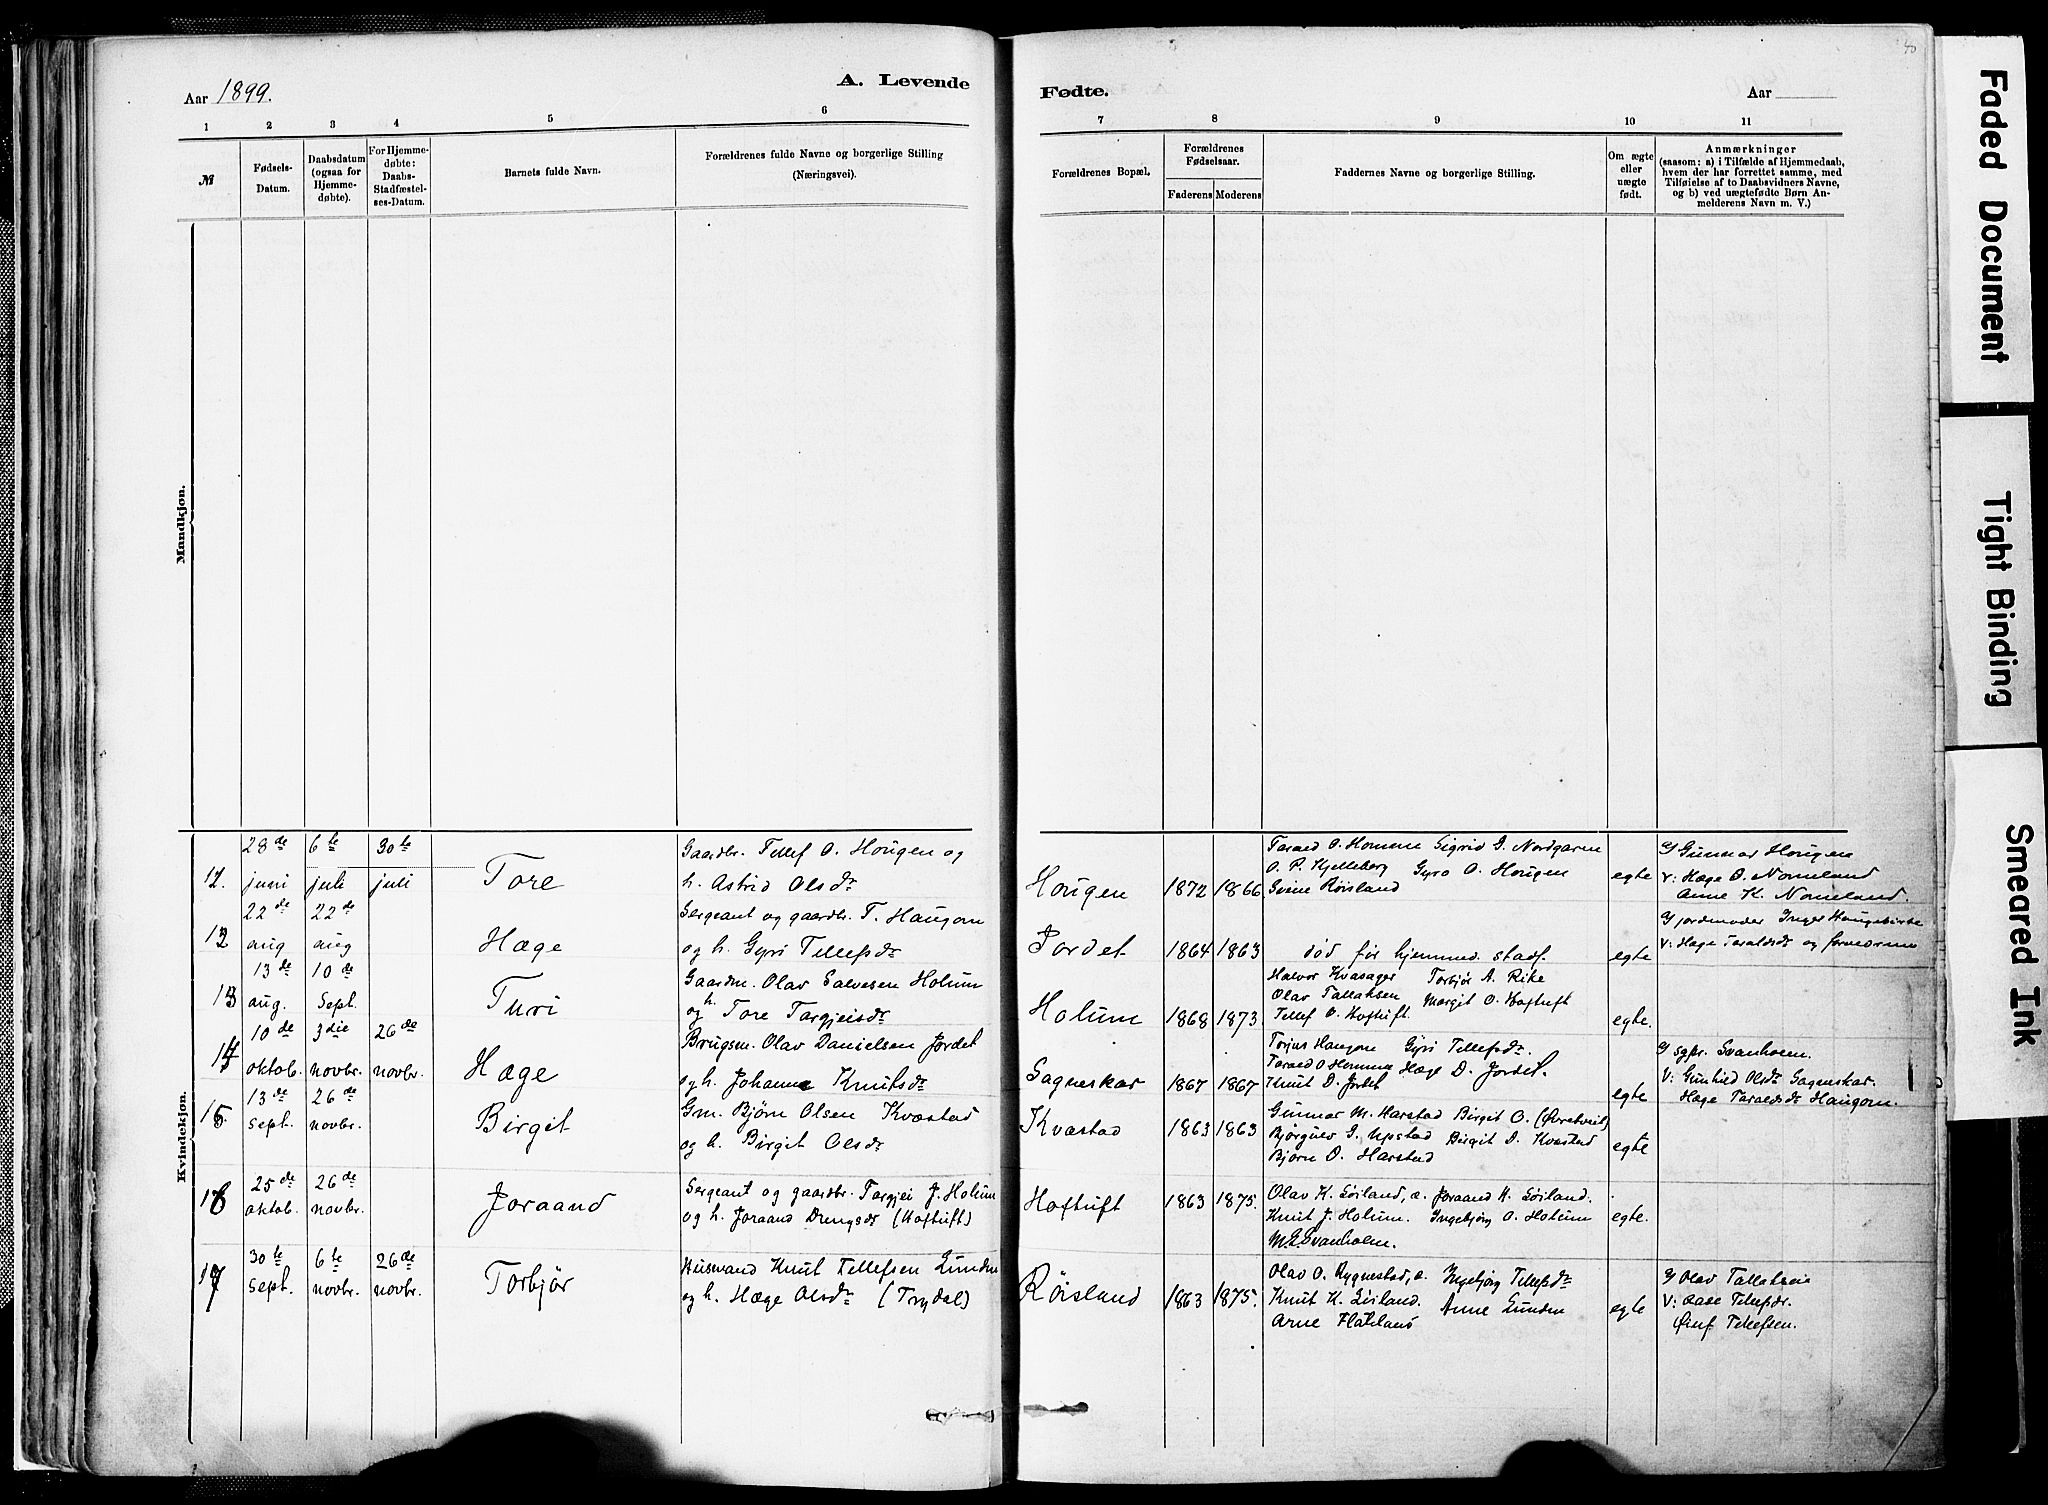 Aar 1899.
A. Levende
Fødte.
Aar
40
1 2 3 4 5 6
7 8 9 10 11
№
Fødsels-Datum.
Daabsdatum (ogsaa for Hjemmedøbte).
For Hjemmedøbte: Daabs-Stadfæstelses-Datum.
Barnets fulde Navn.
Forældrenes fulde Navne og borgerlige Stilling
(Næringsvei).
Forældrenes Bopæl.
Forældrenes Fødselsaar.
Faderens Moderens
Faddernes Navne og borgerlige Stilling.
Om ægte eller uægte født.
Anmærkninger
(saasom: a) i Tilfælde af Hjemmedaab,
hvem der har forrettet samme, med
Tilføielse af to Daabsvidners Navne,
og b) ved uægtefødte Børn An-
melderens Navn m. V.)
Mandkjøn.
Kvindekjøn.
28de 6te 30te Gaardbr. Tellef O. Hougen og
12. juni juli juli Tore h. Astrid Olsdr
Hougen 1872 1866
Tarald O. Homme Sigrid G. Nordgarden
O. P. Kjelleberg Gyro O. Hougen
Svein Røisland
egte
Gunnar Hougen
V: Hæge O. Nomeland
Anne K. Nomeland.
22de 22de Sergeant og gaardbr. T. Haugom
13 aug aug Hæge og h. Gyri Tellefsdr
Jordet 1864 1863
død før hjemmed. stadf.
egte
Gjordmoder Inger Haugebirke
V: Hæge Taraldsdr og
13de 10de Gaardm. Olav Salvesen Holum
aug. Sept. Turi og h. Tore Targjeisdr
Holum 1868 1873.
Halvor Kvasager Torbjør A. Rike
Olav Tallaksen Margit O. Hoftuft
Tellef O. Hoftuft.
egte.
10de 3die 26de Brugsm. Olav Danielsen Jordet
oktob. novbr. novbr. Hæge og h. Johanne Knutsdr
Sagneskar 1867 1867
Torjus Haugom Gyri Tellefsdr.
Tarald O Homme Hæge D. Jordet.
Knut D. Jordet
egte
sgpr. Svanholm.
V: Gunhild Olsdr Sagneskar.
Hæge Taraldsdr Haugom.
13de 26de Gm. Bjørn Olsen Kvæstad
15 sept. novbr. Birgit og h. Birgit Olsdr
Kvæstad 1863 1863
Gunnar M. Harstad Birgit O. (Øvretveit)
Bjørgulv G. Upstad Birgit D. Kvæstad
Bjørn O. Harstad
egte
25de 26de Sergeant og gaardbr. Targjei J. Holum
16 oktob. novbr. Joraand og h. Joraand Drengsdr (Hoftuft)
Hoftuft 1863 1875.
Olav K. Løiland, e. Joraand H. Løiland.
Knut J. Holum. Ingebjørg O. Holum
M. Svanholm.
egte.
30te 6te 26de Husmand Knut Tellefsen Lunden
17 sept. novbr. novbr. Torbjør og h. Hæge Olsdr (Trydal)
Røisland 1863 1875.
Olav O. Rygnestad, e. Ingebjørg Tellefsdr
Knut K. Løiland. Anne Lunden
Arne Flateland
egte
Olav Tallaksen
V: Aase Tellefsdr.
Tellefsen.
Faded Document
Tight Binding
Smeared Ink